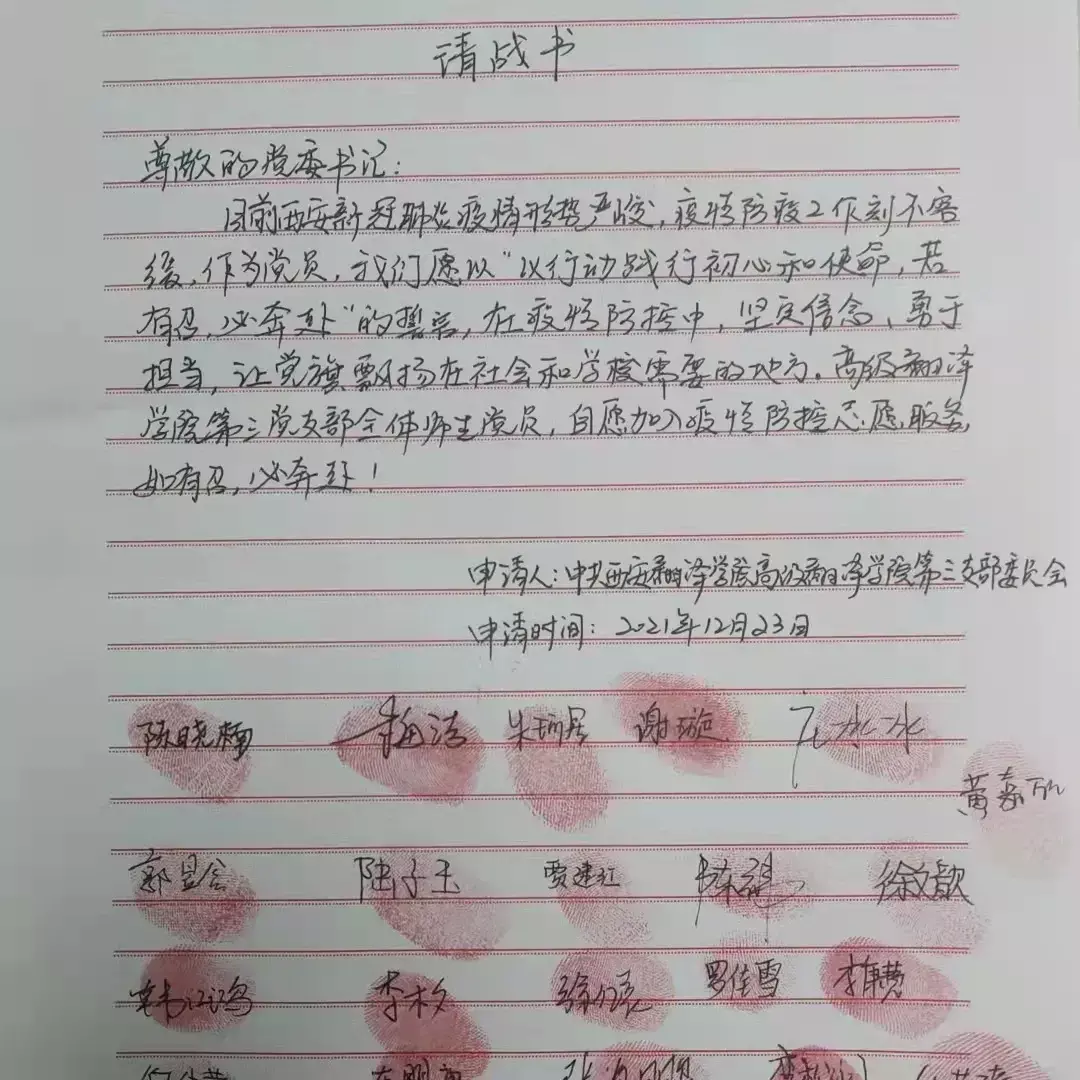 请战书
尊敬的党委书记：
目前西安新冠肺炎疫情形势严峻，疫情防疫工作刻不容
缓，作为党员，我们愿以“以行动践行初心和使命，若
有召，必奔赴”的誓言，在疫情防控中，坚定信念、勇于
担当，让党旗飘扬在社会和学校需要的地方。高级翻译
学院第三党支部全体师生党员，自愿加入疫情防控志愿服务，
如有召，必奔赴！
申请人：中共西安翻译学院高级翻译学院第三支部委员会
申请时间：2021年12月23日
陈晓楠 梅洁 朱珊居 谢璇 冰冰
黄嘉
郭昱含 陆子玉 贾建红 徐文歆
韩江鸿 李 徐 罗佳雪 李